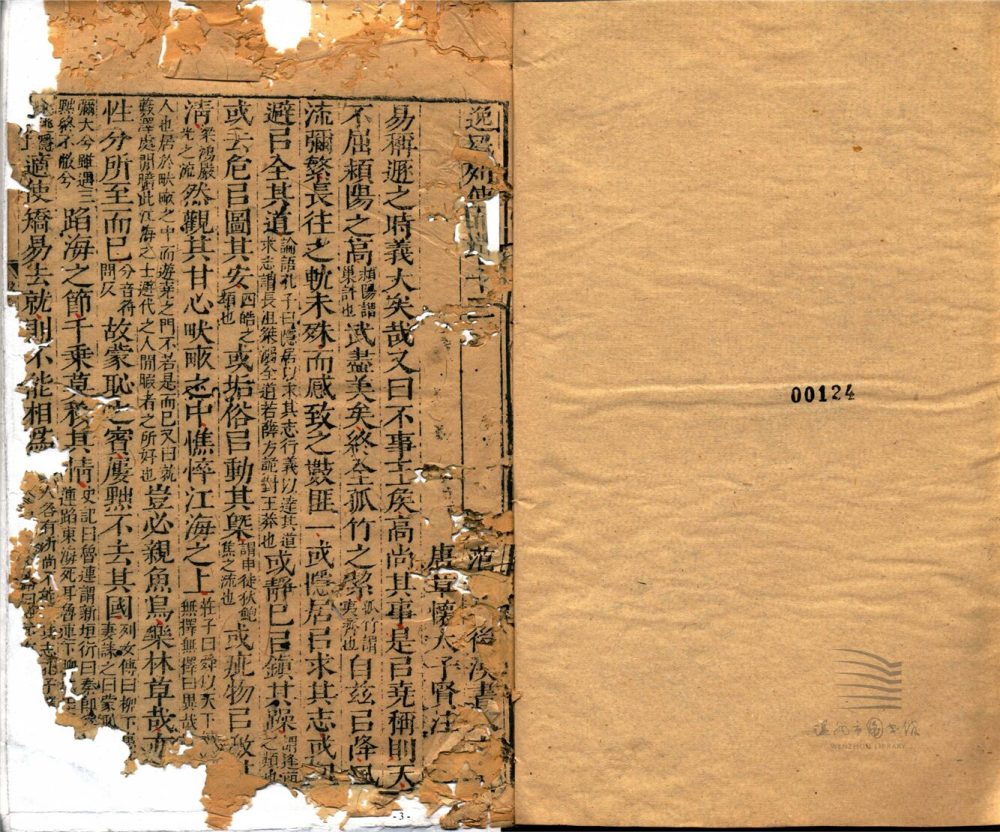 逸民列傳
范 後漢書
唐章懷太子賢注
易稱遯之時義大矣哉又曰不事王矦高尚其事是㠯堯稱則天
不屈潁陽之高潁陽謂巢許也武盡美矣終全孤竹之絜孤竹謂夷齊也自茲㠯降風
流彌繁長往之軌未殊而感致之數匪一或隱居㠯求其志或
避㠯全其道論語孔子曰隱居以求其志行義以達其道求志謂長沮桀溺全道若薛方詭對王莽也或靜己㠯鎮其躁謂逢萌之類也
或去危㠯圖其安四皓之類也或垢俗㠯動其槩謂申徒狄鮑焦之流也或疵物㠯激其
清梁鴻嚴光之流然觀其甘心畎畝之中憔悴江海之上莊子曰舜以天下無擇無擇曰異哉
人也居於畎畝之中而遊堯之門不若是而已又曰就藪澤處閒曠此江海之士避代之人閒暇者之所好也豈必親魚鳥樂林草哉亦
性分所至而已分音符問反故蒙恥之賓屢黜不去其國列女傳曰柳下惠妻誄之曰蒙恥
彌大兮雖遇三黜終不蔽兮蹈海之節千乘莫移其情史記曰魯連謂新垣衍曰秦即連蹈東海死耳魯連下
適使矯易去就則不能相為人各有所尚
-3-
00124
温州市图书馆
WENZHOU LIBRARY